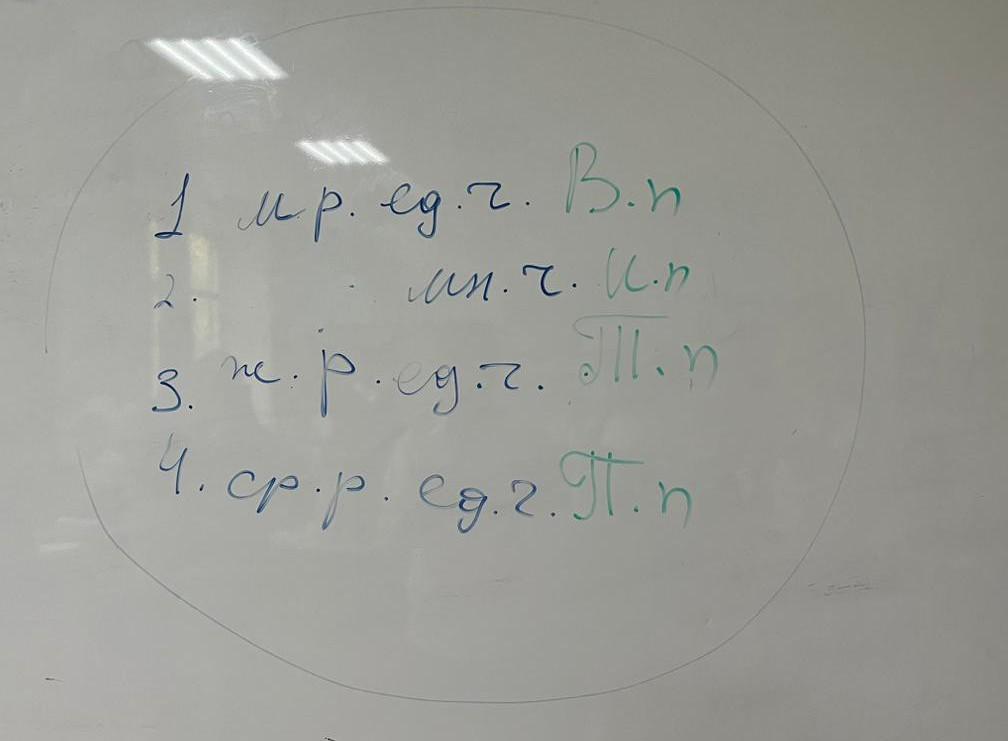 1 м р. ед. ч. В.п
2. мн. ч. И.п
3. ж. р. ед. ч. Т.п
4. ср. р. ед. ч. П.п